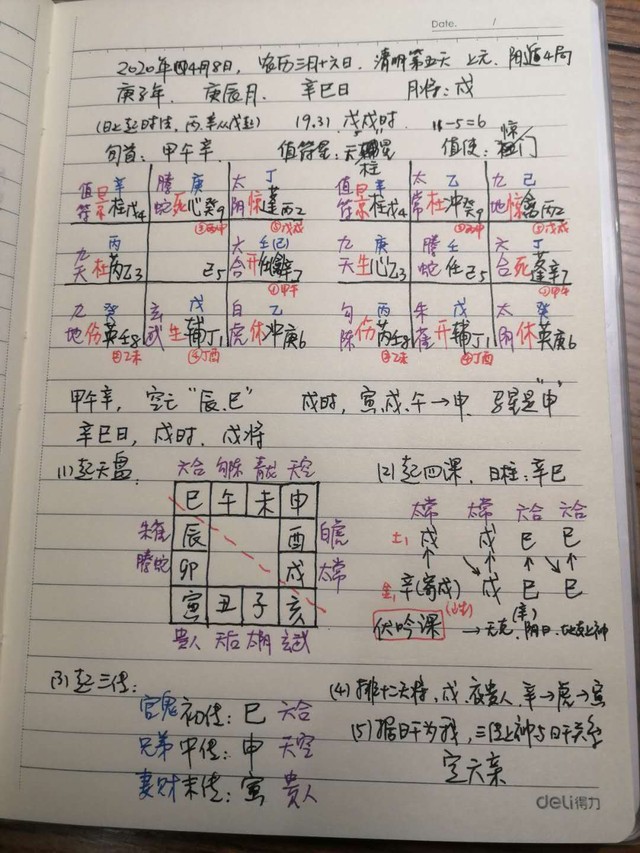 Date. /
2020年4月8日，农历三月十六日，清明第五天 上元，阴遁4局
庚子年、庚辰月、辛巳日 月将：戌
(日上起时法，丙、辛从戊起) 19.31，戊戌时 11-5=6
旬首：甲午辛， 值符星：天柱星 值使：惊门
值 辛 螣 庚 太 丁 值 辛 太 乙 九 己
符 景柱戊4 蛇 死心癸9 阴 惊蓬丙2 符 景柱戊4 常 杜冲癸9 地 惊禽丙2
③丙申 ⑤戊戌 ③丙申 ⑤戊戌
九 丙 六 壬(己) 九 庚 螣 壬 六 丁
天 杜芮乙3 己5 合 开任辛7 天 生心乙3 蛇 任己5 合 死蓬辛7
①甲午 ①甲午
九 癸 玄 戊 白 乙 勾 丙 朱 戊 太 癸
地 伤英壬8 武 生辅丁1 虎 休冲庚6 陈 伤芮壬8 雀 开辅丁1 阴 休英庚6
②乙未 ④丁酉 ②乙未 ④丁酉
甲午辛，空亡“辰、巳” 戌时，寅、戌、午→申 马星是“申”
辛巳日，戌时，戌将
(1)起天盘 六合 勾陈 青龙 天空
巳 午 未 申
朱雀 辰 酉 白虎
螣蛇 卯 戌 太常
寅 丑 子 亥
贵人 天后 太阴 玄武
(2)起四课，日柱：辛巳
太常 太常 六合 六合
土 戌 戌 巳 巳
金 辛(寄戌) 戌 巳 巳
(辛)
伏吟课 → 无克，阴日，地支上神
(3)起三传：
官鬼 初传：巳 六合
兄弟 中传：申 天空
妻财 末传：寅 贵人
(4)排十二天将，戌，夜贵人，辛→虎→寅
(5)据日干为我，三传上神与日干关系
定六亲
deli得力